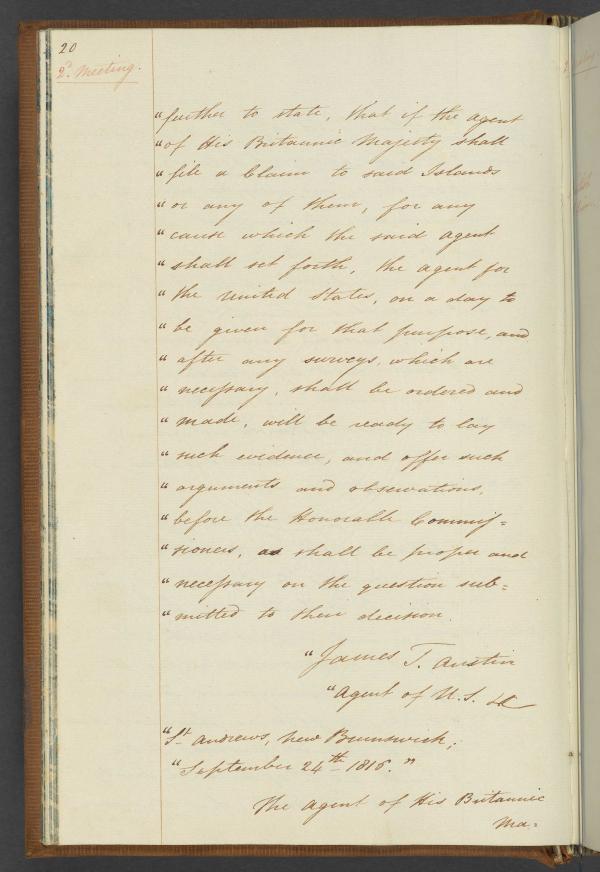 20
2d. Meeting.
"further to state, that if the agent
"of His Britannic Majesty shall
"file a Claim to said Islands
"or any of them, for any
"cause which the said agent
"shall set forth, the agent for
"the united States, on a day to
"be given for that purpose, and
"after any surveys, which are
"necessary, shall be ordered and
"made, will be ready to lay
"such evidence, and offer such
"arguments and observations,
"before the Honorable Commis=
"sioners, as shall be proper and
"necessary on the question sub=
"mitted to their decision.
"James T. Austin
"Agent of U.S. &c
"St. Andrews, New Brunswick,
"September 24th 1816."
The Agent of His Britannic
Ma=